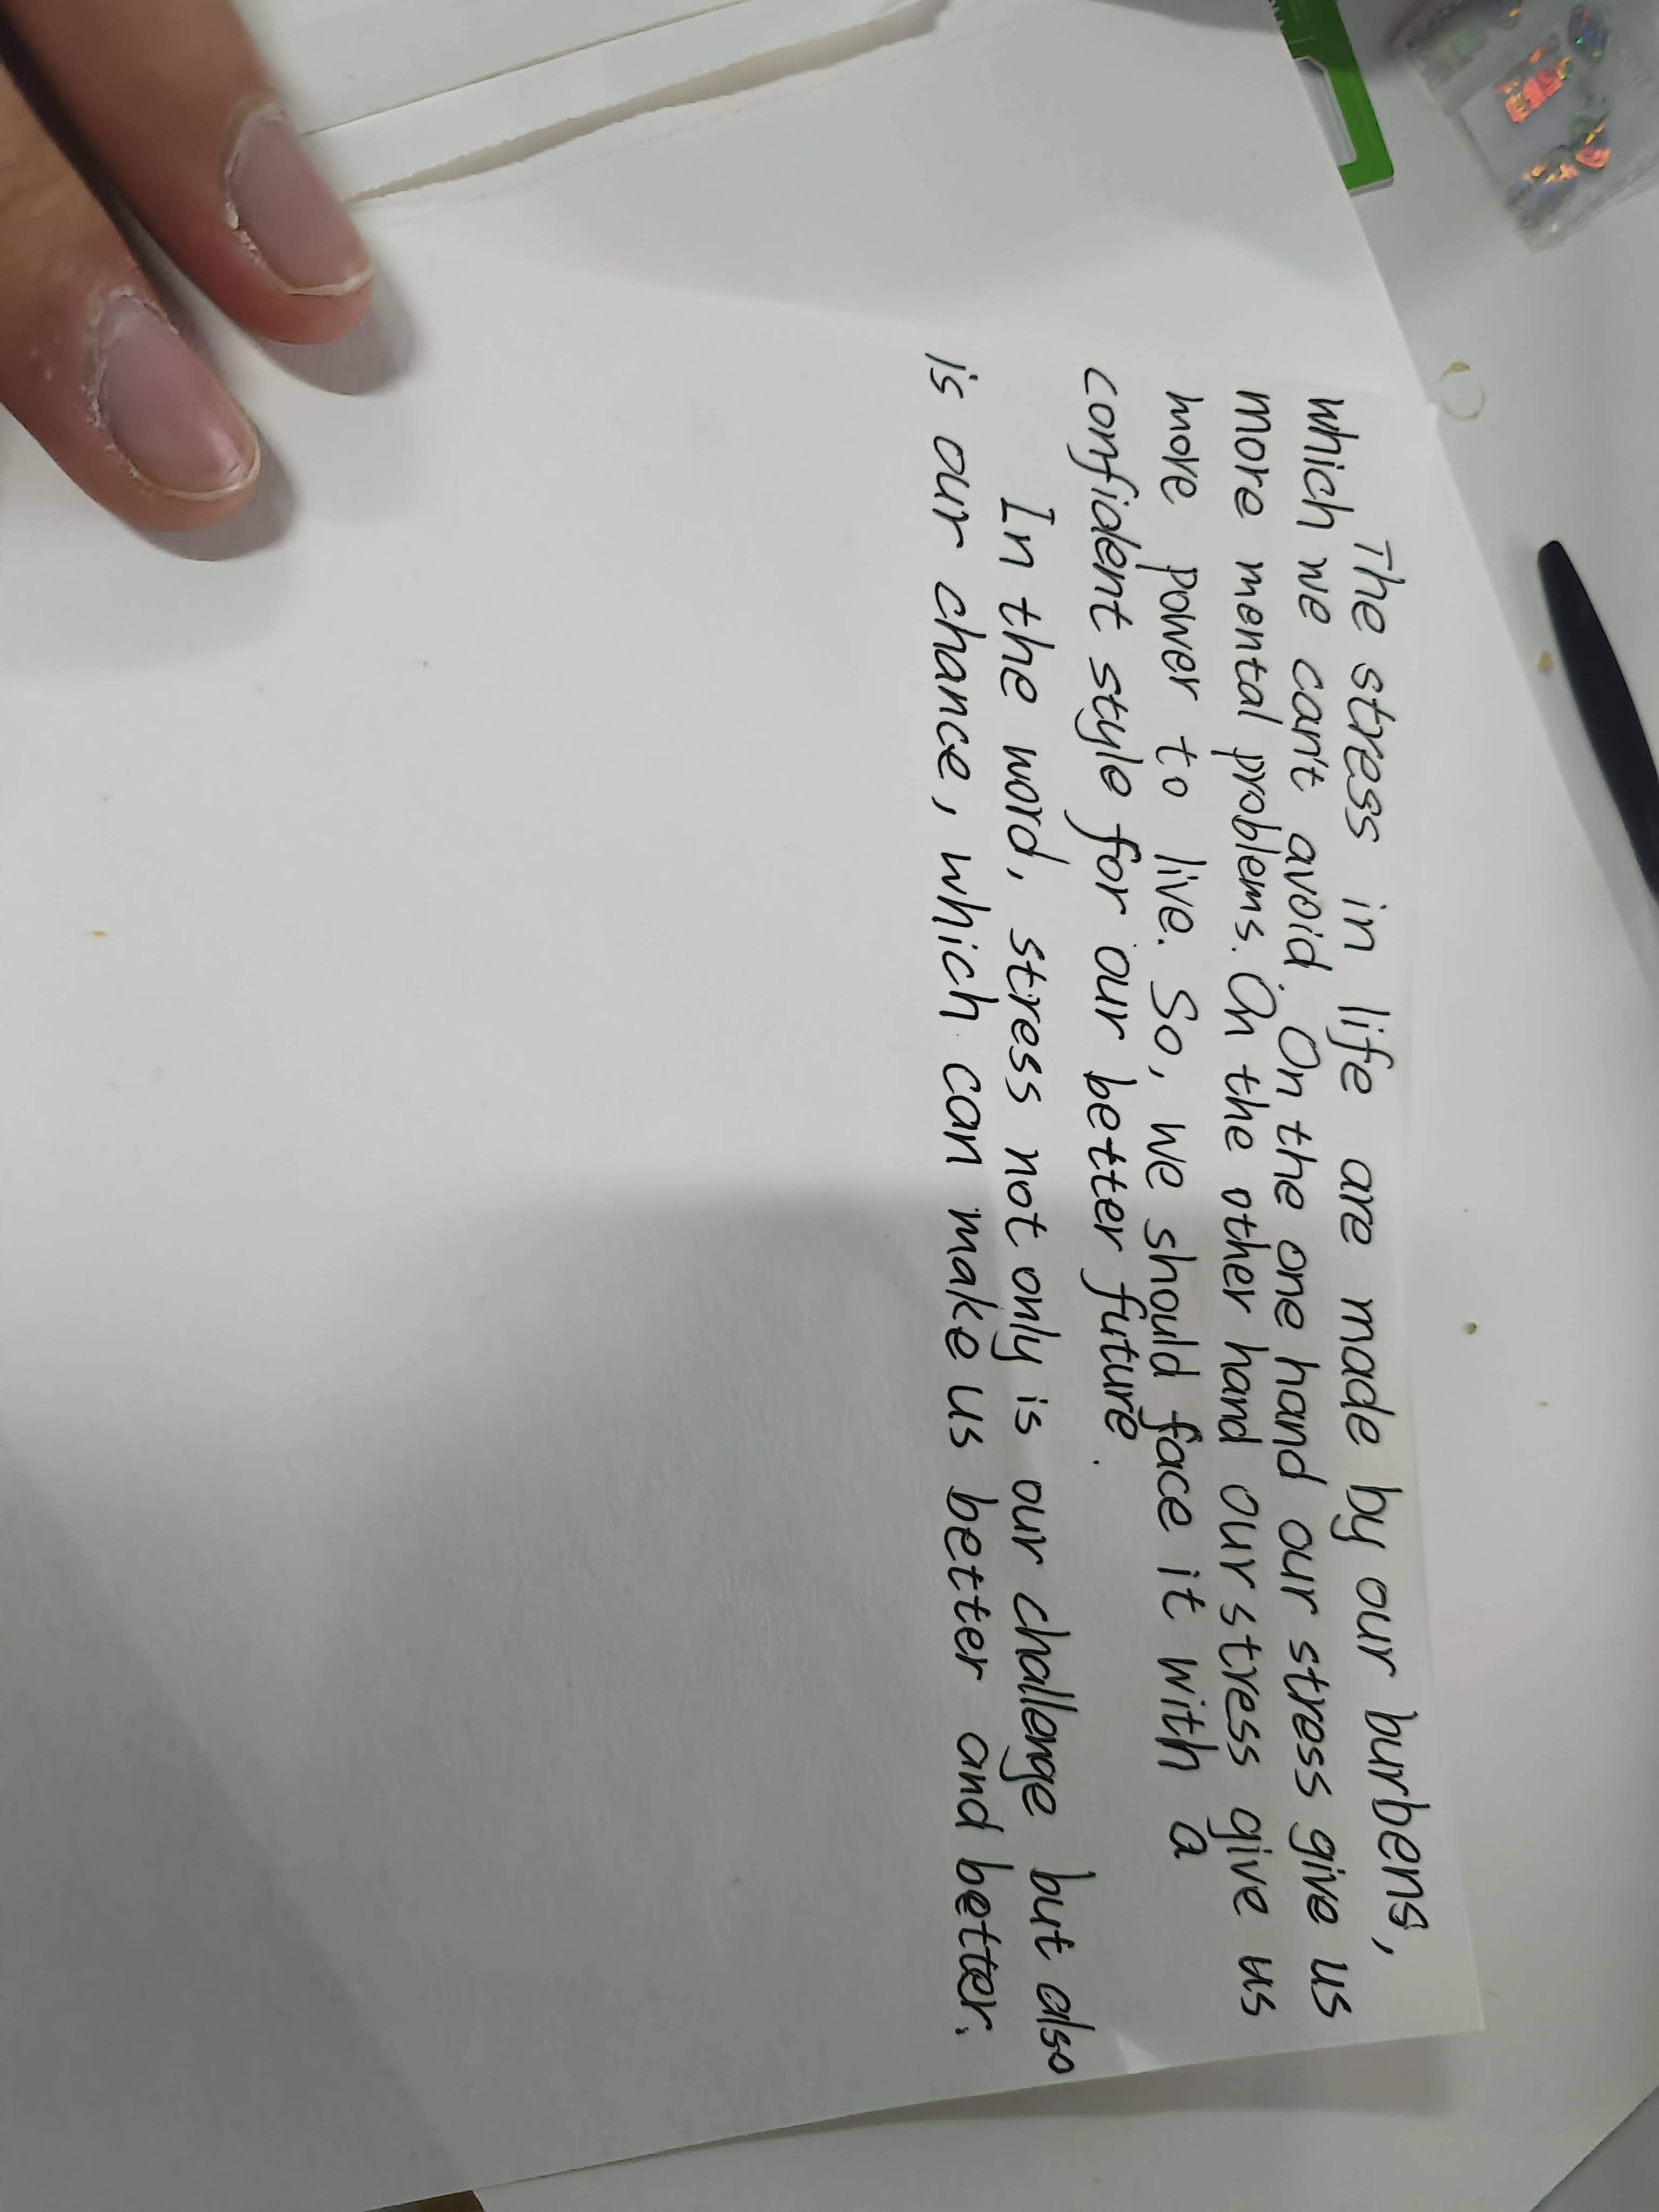 The stress in life are made by our burbens,
which we can't avoid. On the one hand our stress give us
more mental problems. On the other hand our stress give us
more power to live. So, we should face it with a
confident style for our better future.
In the word, stress not only is our challenge but also
is our chance, which can make us better and better.